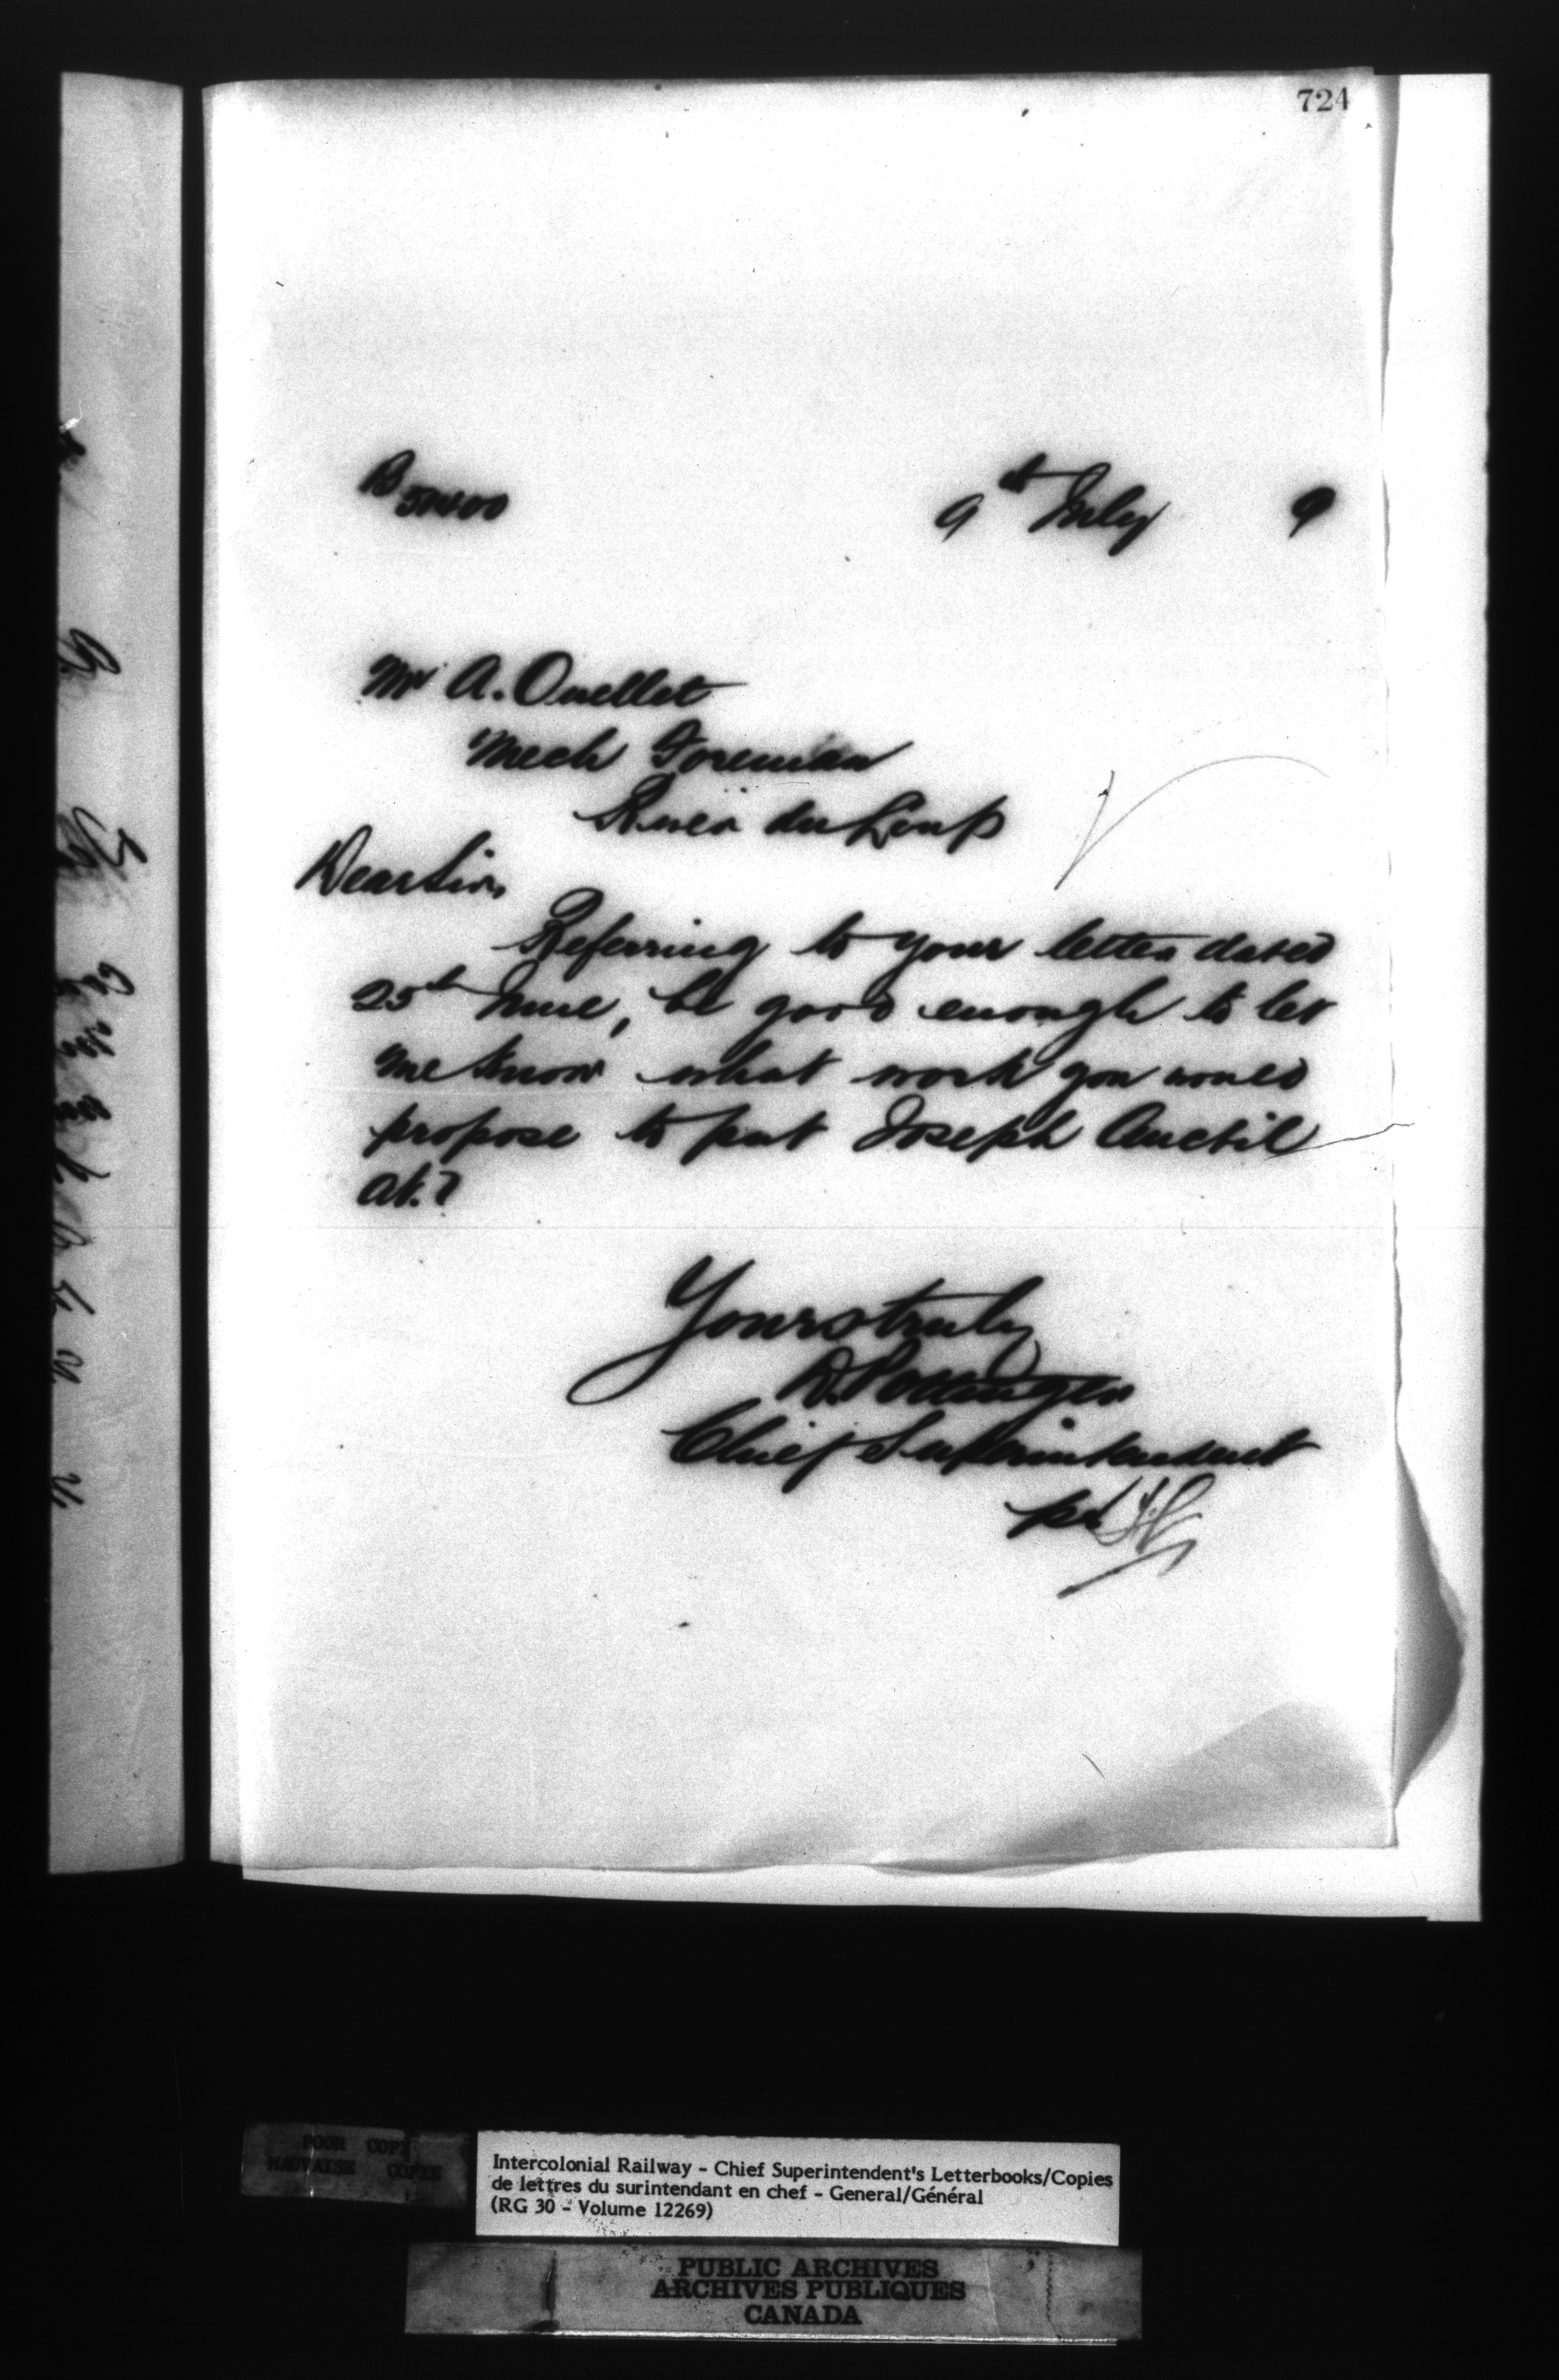 724
9th July 9
Mr A. Ouellet
Mech Foreman
River du Loup
Dear Sir,
Referring to your letter dated
25th June, be good enough to let
me know what work you would
propose to put Joseph Anctil
at?
Yours truly
D. Pottinger
Chief Superintendent
per
POOR COPY
MAUVAISE COPIE
Intercolonial Railway - Chief Superintendent's Letterbooks/Copies
de lettres du surintendant en chef - General/Général
(RG 30 - Volume 12269)
PUBLIC ARCHIVES
ARCHIVES PUBLIQUES
CANADA